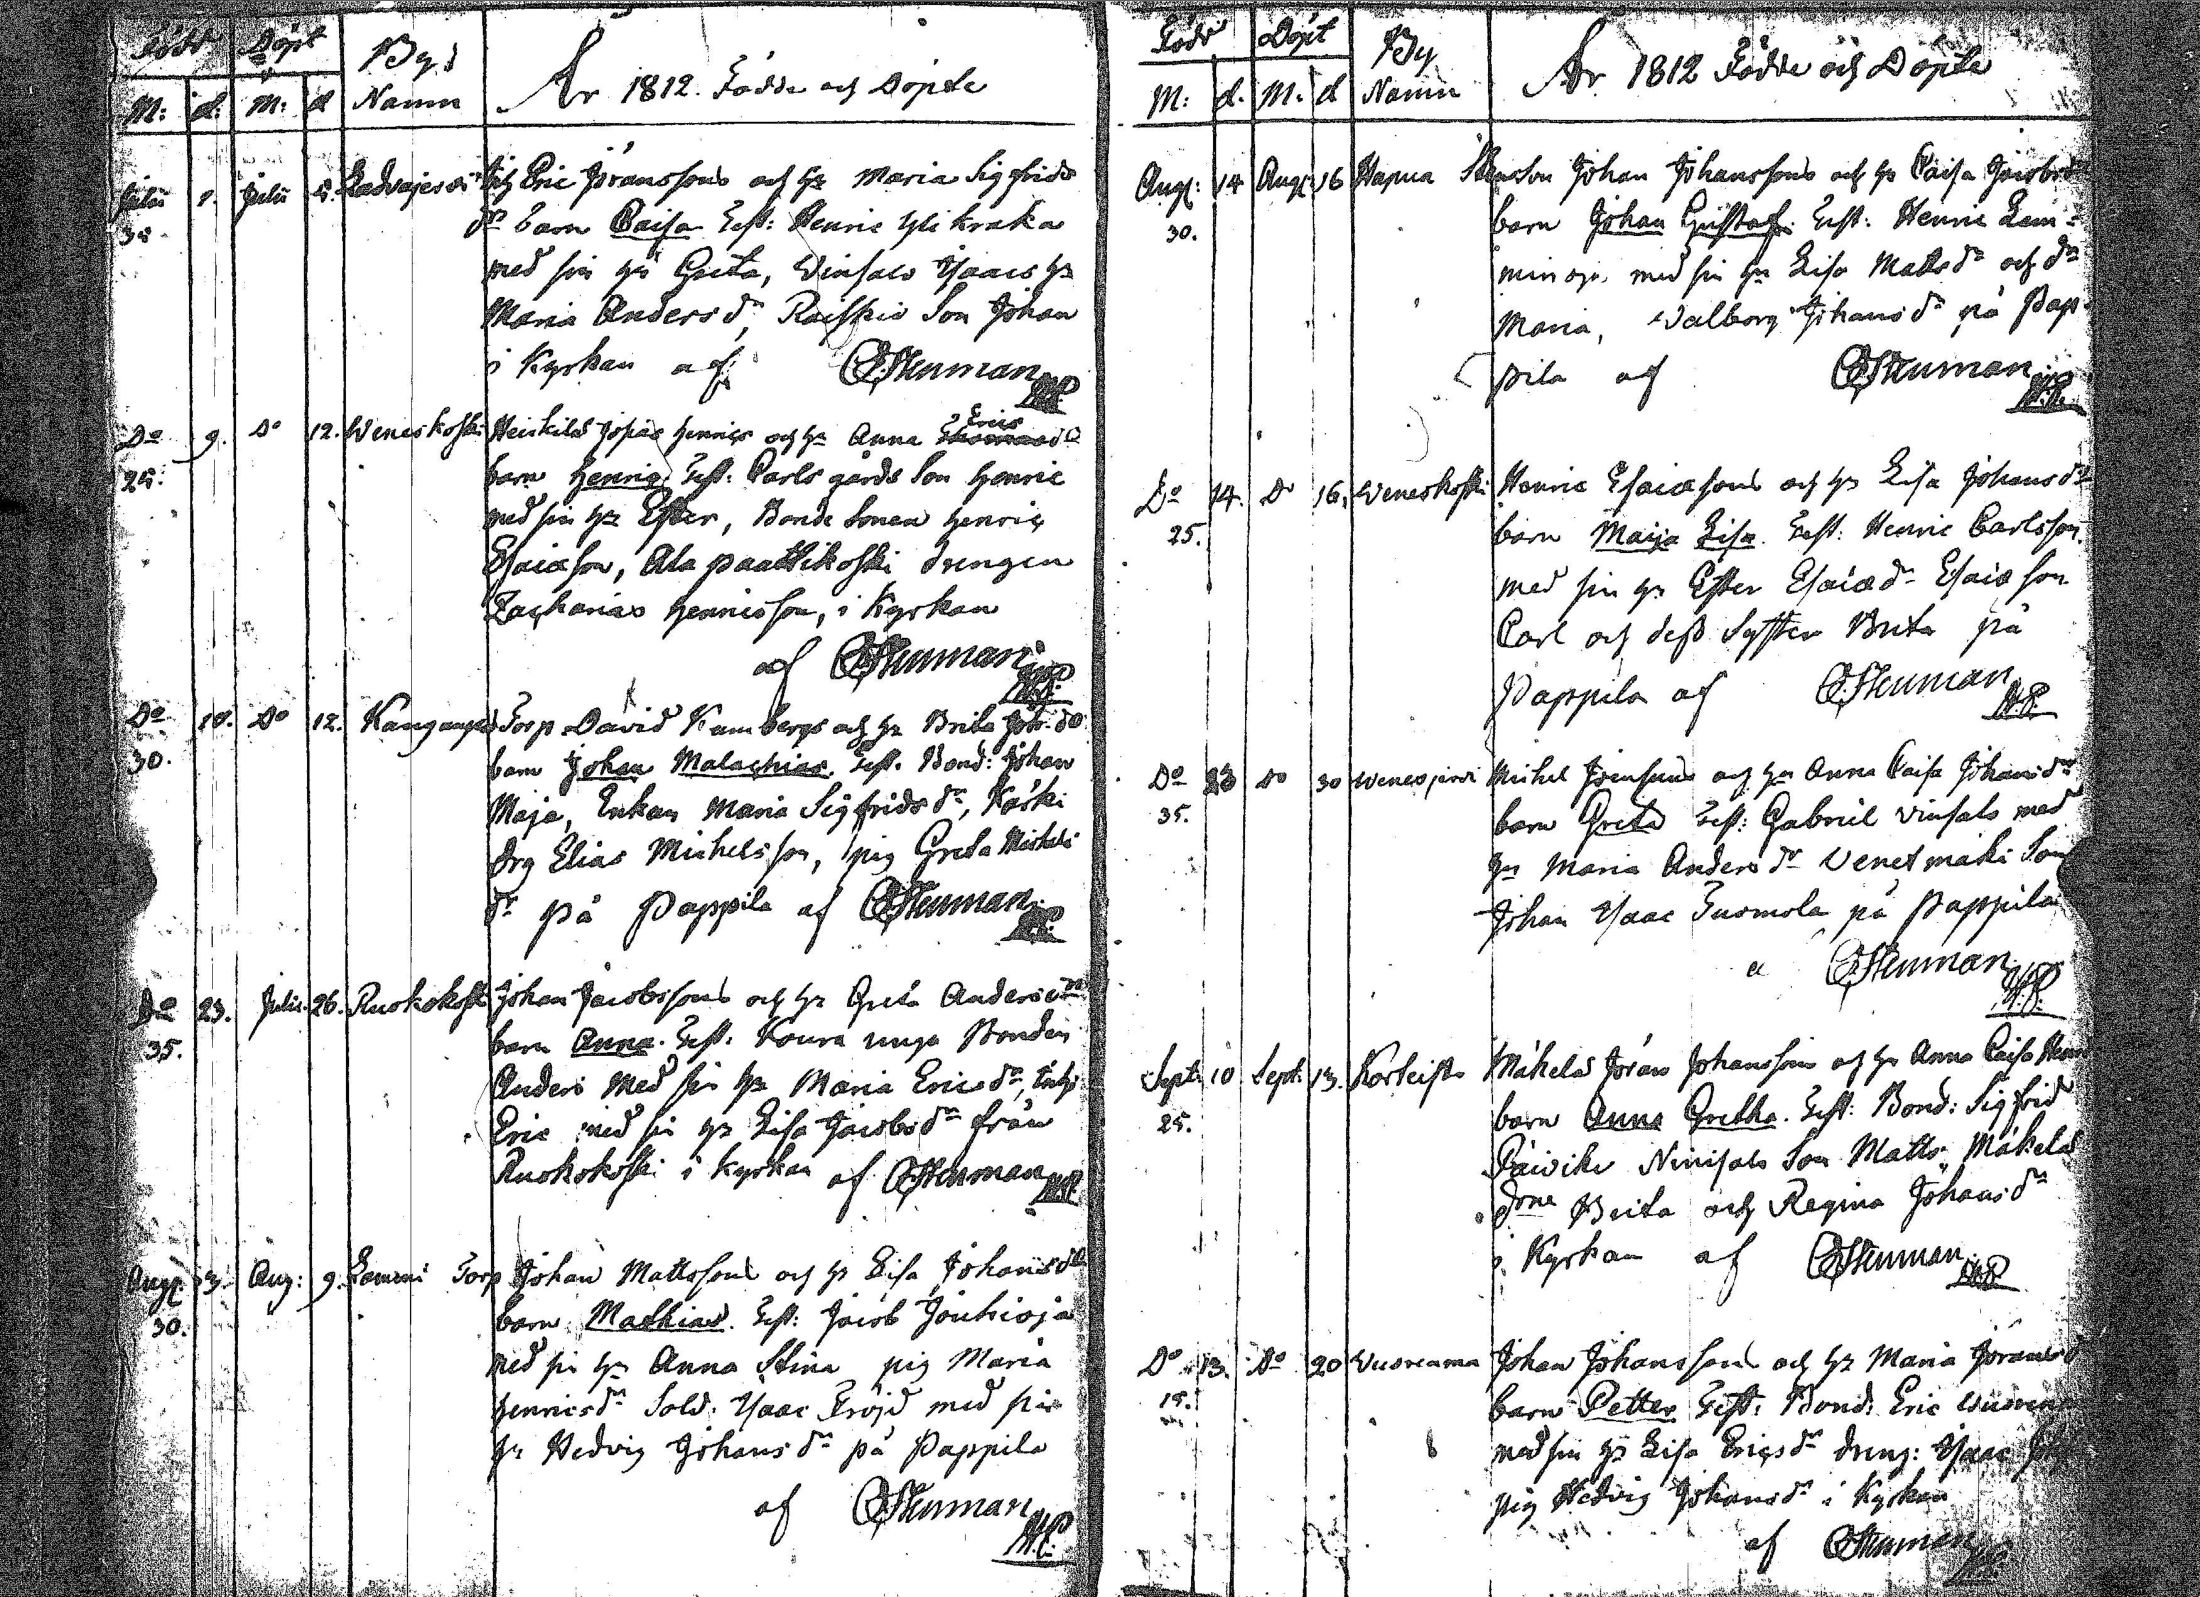 Född Döpt By
M: d: M: d Namn
År 1812. Födde och Döpte
Julii 1. Julii 5.
Eric Jöranssons och h: Maria Sigfrids
dr barn Caisa Test: Henric Yli kraka
med sin h: Greta, Vinsalo Isaacs h:
Maria Anders dr, Son Johan
i Kyrkan af CStenman
V.P.
Do 9. Do 12. Weneskoski Heiskilas Josias Henrics och h: Anna Erics dr
25.
barn Henric Test: Carls gårds Son Henric
med sin h: Ester, Bonde Sonen Henric
Esaiæson, Ala paattikoski drengen
Zacharias Henricsson, i Kyrkan
af CStenman
V.P.
Do 10. Do 12. Torp David Kambergs och h: Brita Joh: dr
30.
barn Johan Malachias. Test. Bond: Johan
Maja, Enkan Maria Sigfrids dr, Koski
drg Elias Michelsson, pig Greta Michels
dr på Pappila af CStenman
V.P.
Do 23. Julii 26. Ruokokoski Johan Jacobssons och h: Greta Anders dr
35.
barn Anna. Test. Koura unga Bonden
Anders med sin h: Maria Erics dr,
Eric med sin h: Lisa Jacobs dr från
Ruokokoski i Kyrkan af CStenman V.P.
Aug: 3. Aug: 9. Lammi Torp Johan Mattssons och h: Lisa Johans dr
30.
barn Mathias. Test: Jacob Jouhioja
med sin h: Anna Stina pig Maria
Henrics dr Sold. Isaac Fröjd med sin
h: Hedvig Johans dr på Pappila
af CStenman
V.P.
Född Döpt By
M: d. M. d Namn
År 1812 Födde och Döpte
Aug: 14 Aug: 16 Hapua Johan Johanssons och h: Caisa Jacobs dr
30.
barn Johan Gustaf. Test: Henric Lam-
minoja med sin h: Lisa Matts dr och dr
Maria, Walborg Johans dr på Pap-
pila af CStenman
V.P.
Do 14. Do 16. Weneskoski Henric Esaiæsons och h: Lisa Johans dr
25.
barn Maija Lisa. Test: Henric Carlsson
med sin h: Ester Esaiæ dr Esaiæ son
Carl och dess Syster Brita på
Pappila af CStenman
V.P.
Do 23 Do 30 Wenesjärvi Michel Jöranssons och h: Anna Caisa Johans dr
35.
barn Greta Test: Gabriel Vinsalo med
h: Maria Anders dr Venetmäki Son
Johan Isaac Tuomola på Pappila
a CStenman
V.P.
Sept: 10 Sept: 13. Korteisto Mäkelas Jöran Johanssons och h: Anna Caisa
25.
barn Anna Gretha. Test: Bond: Sigfrid
Päivike Ninisalo Son Matts. Mäkelas
Brita och Regina Johans dr
i Kyrkan af CStenman
V.P.
Do 13. Do 20 Wuorenma Johan Johanssons och h: Maria Jörans dr
barn Petter Test: Bond: Eric
med sin h: Lisa Erics dr dreng: Isaac
pig Hedvig Johans dr i Kyrkan
af CStenman